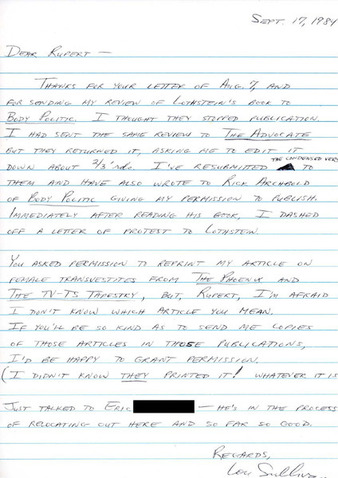 SEPT. 17, 1984
DEAR RUPERT —
THANKS FOR YOUR LETTER OF AUG. 7, AND
FOR SENDING MY REVIEW OF LOTHSTEIN'S BOOK TO
BODY POLITIC. I THOUGHT THEY STOPPED PUBLICATION.
I HAD SENT THE SAME REVIEW TO THE ADVOCATE
BUT THEY RETURNED IT, ASKING ME TO EDIT IT
DOWN ABOUT 2/3'rds. I'VE RESUBMITTED THE CONDENSED VERS TO
THEM AND HAVE ALSO WROTE TO RICK ARCHBOLD
OF BODY POLITIC GIVING MY PERMISSION TO PUBLISH.
IMMEDIATELY AFTER READING HIS BOOK, I DASHED
OFF A LETTER OF PROTEST TO LOTHSTEIN.
YOU ASKED PERMISSION TO REPRINT MY ARTICLE ON
FEMALE TRANSVESTITES FROM THE PHOENIX AND
THE TV-TS TAPESTRY, BUT, RUPERT, I'M AFRAID
I DON'T KNOW WHICH ARTICLE YOU MEAN.
IF YOU'LL BE SO KIND AS TO SEND ME COPIES
OF THOSE ARTICLES IN THOSE PUBLICATIONS,
I'D BE HAPPY TO GRANT PERMISSION.
(I DIDN'T KNOW THEY PRINTED IT! WHATEVER IT IS
JUST TALKED TO ERIC — HE'S IN THE PROCESS
OF RELOCATING OUT HERE AND SO FAR SO GOOD.
REGARDS,
Lou Sullivan